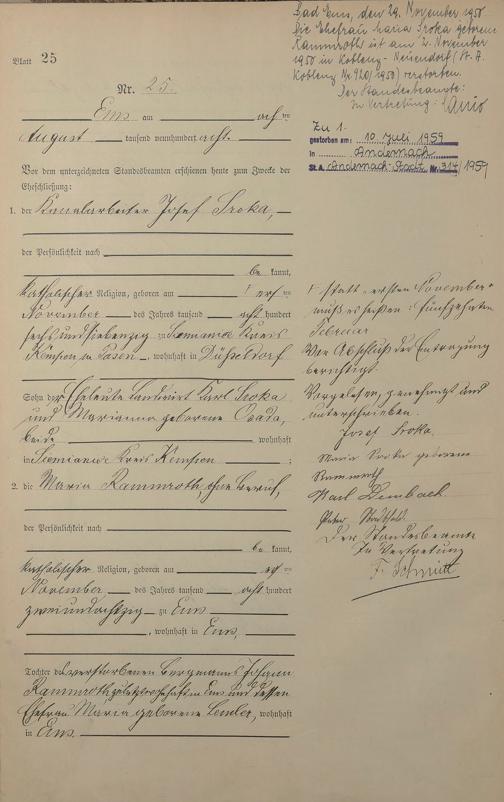 Blatt 25
Nr. 25.
Ems am acht
August tausend neunhundert acht.
Vor dem unterzeichneten Standesbeamten erschienen heute zum Zwecke der
Eheschließung:
1. der Kanalarbeiter Josef Sroka,
der Persönlichkeit nach
be kannt,
katholischer Religion, geboren am ersten
November des Jahres tausend acht hundert
sechsundsiebenzig zu Siemianice Kreis
Kempen in Posen, wohnhaft in Düsseldorf
Sohn der Eheleute Landwirt Karl Sroka
und Marianna geborene
beide wohnhaft
in Siemianice Kreis Kempen ;
2. die Maria Rammroth, ohne Beruf,
der Persönlichkeit nach
be kannt,
katholischer Religion, geboren am
November des Jahres tausend acht hundert
zweiundachtzig zu Ems
, wohnhaft in Ems,
Tochter des verstorbenen Bergmanns Johann
Rammroth, zuletzt wohnhaft in Ems und dessen
Ehefrau Maria geborene wohnhaft
in Ems.
Bad Ems, den 29. November 1950
Die Ehefrau Maria Sroka geborene
Rammroth ist am 2. November
1950 in Koblenz-Neuendorf (St. A.
Koblenz Nr. 920/1950) verstorben.
Der Standesbeamte:
In Vertretung:
Zu 1.
gestorben am: 10. Juli 1959
in Andernach
St. A. Andernach-Stadt Nr. 317/1959
statt "ersten November"
muß es heißen: "fünfzehnten
Februar
Vor Abschluß der Eintragung
berichtigt.
Vorgelesen, genehmigt und
unterschrieben.
Josef Sroka.
Maria Sroka geborene
Rammroth
Karl Dembach
Peter
Der Standesbeamte
In Vertretung
F. Schmitt